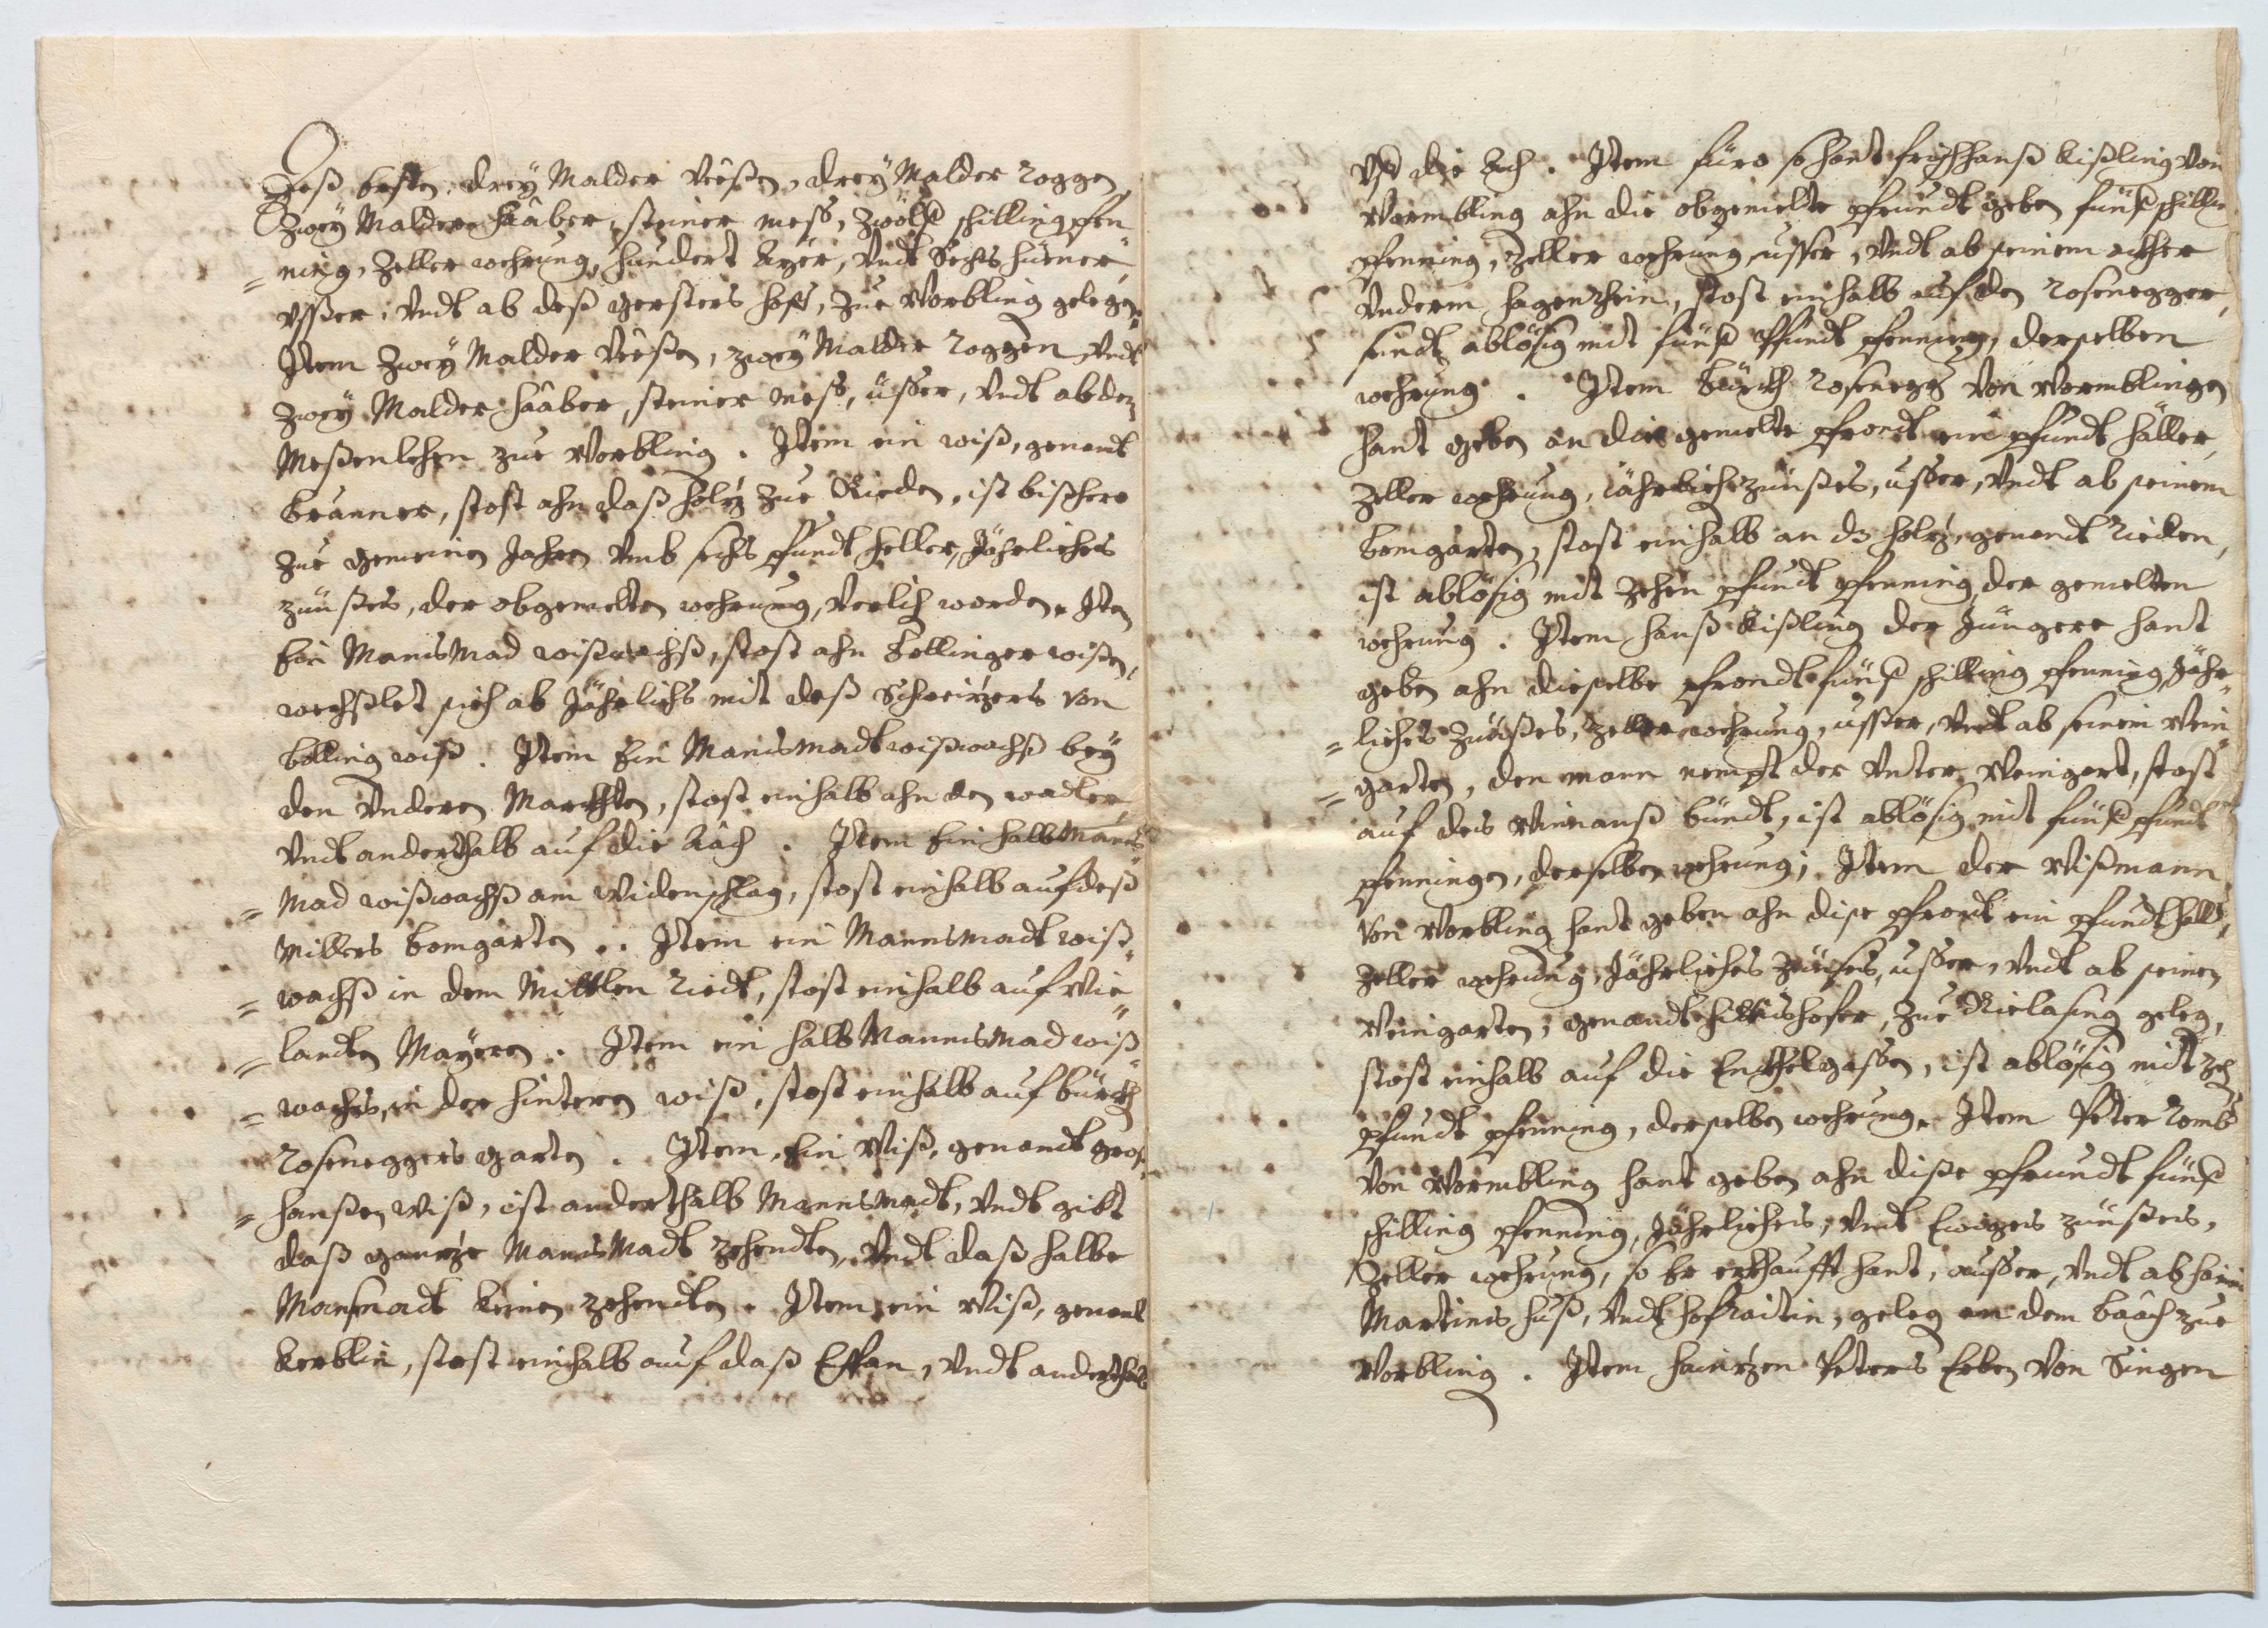 Zum Ersten, drey Malder Veeßen, drey Malder Roggen,
Zwey Malder Haaber, steiner mess, Zwölff schilling pfen
= ning, Zeller wehrung, hundert Ayer, Vndt Sechs hüener,
vsser, Vndt ab deß Gersters hoff, Zue Worbling gelegen.
Item Zwey Malder Veeßen, zwey Malder Roggen, Vndt
Zwey Malder Haaber, steiner mess, usser, Vndt ab dem
Meßenlehen zue Worbling. Item ein wiß, genandt
Brunner, stost ahn daß holtz zue Rieden, ist bißhero
zue gemeinen Jahren vmb sechs pfundt heller, Jährliches
zünßes, der obgemelten wehrung, verlich worden. Item
Ein MansMad wißwachß, stost ahn Bollinger wißen,
wechßlet sich ab Jährlichs mit deß Schweitzers von
Bolling wiß. Item Ein Mansmadt wißwachß bey
den Vnderen Marckhten, stost einhalb ahn den wadler,
Vndt anderthalb auf die Aach. Item Ein halb Manns
= Mad wißwachß am Widenschlag, stost einhalb auf deß
Millers bomgarten. Item ein Mannsmadt wiß
= wachß in dem Mittlen Riedt, stost einhalb auf Wie
= landten Mayeren. Item ein halb MannsMad wiß
= wachs, in der hinteren wiß, stost einhalb auf Burckh
Roseneggers garten. Item, Ein Wiß, genandt groß
= hanßen wiß, ist anderthalb Mannsmadt, Vndt gibt
daß gantze MansMadt zehendten, Vndt daß halbe
Mansmadt keinen zehendten. Item, ein Wiß, genant
Kerblin, stost einhalb auf daß Esstan, Vndt anderthalb
Vff die Ach. Item füro so hant fryschhanß Kißling von
Wormbling ahn die obgemelte pfrundt geben fünff schilling
pfenning, Zeller wehrung, usser, Vndt ab seinem ackher
Vnderm hagenrhein, stost einhalb auf den Rosenegger,
sindt ablösig mit fünff pfundt pfenning, derselben
wehrung. Item Burckh Rosenegg von Wormblingen
hant geben an die gemelte pfrondt ein pfundt häller,
Zeller wehrung, Jährlichs zünßes, usser, Vndt ab seinem
bomgarten, stost einhalb an dz holtz, genandt Rieden,
ist ablösig mit Zehen pfundt pfenning der gemelten
wehrung. Item hanß Kißling der Jüngere hant
geben ahn dieselbe pfrondt fünff schilling pfenning, Jähr
= liches Zünßes, zeller wehrung, usser, Vndt ab seinem Wein
= garten, den mann nempt der Vnter Weingart, stost
auf des Winmanß bündt, ist ablösig mit fünff pfundt
pfenningen, derselben wehrung; Item der Wißmann
von Worbling hant geben ahn dise pfrondt ein pfundt haller,
Zeller wehrung, Jährliches Zünses, usser, Vndt ab seinem
Weingarten, genandt, Zue Rielasing geleg,
stost einhalb auf die gassen, ist ablösig mit zehen
pfundt pfenning, derselben wehrung. Item Peter Romb
von Wormbling hant geben ahn diße pfrundt fünff
schilling pfenning, Jährliches, Vndt Ewiges zünßes,
Zeller wehrung, so Er erkaufft hant, ausser, Vndt ab
Martinis huß, Vndt hofraitin, geleg an dem baach zue
Worbling. Item haintzen Peters Erben von Singen